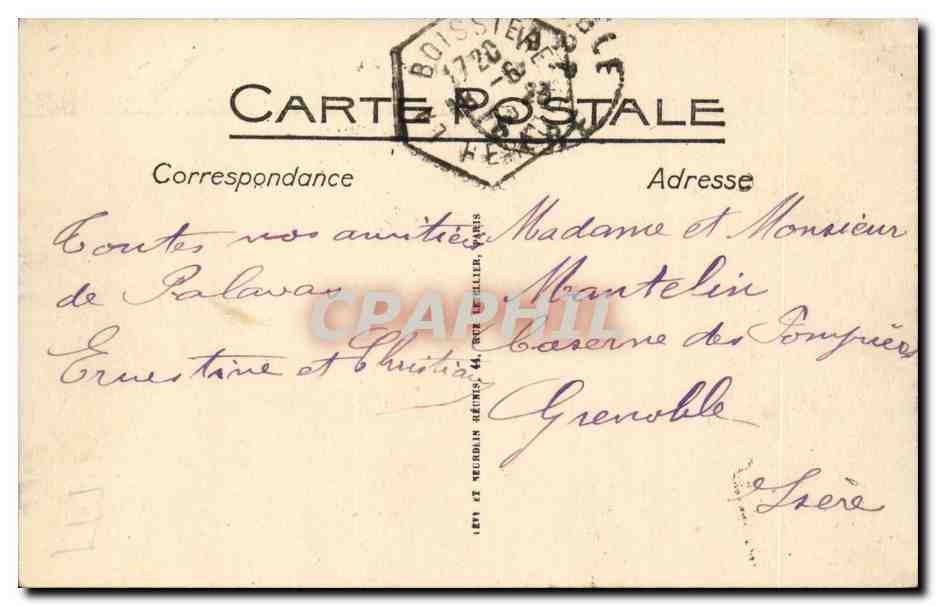 BOISSIE
17 20
CARTE POSTALE
Correspondance
Adresse
Toutes nos amitiés
de Palavas
Ernestine et Christian
LÉVY ET NEURDEIN RÉUNIS, 44, RUE LETELLIER, PARIS
Madame et Monsieur
Mantelin
Caserne des Pompiers
Grenoble
Isère
CPAPHIL